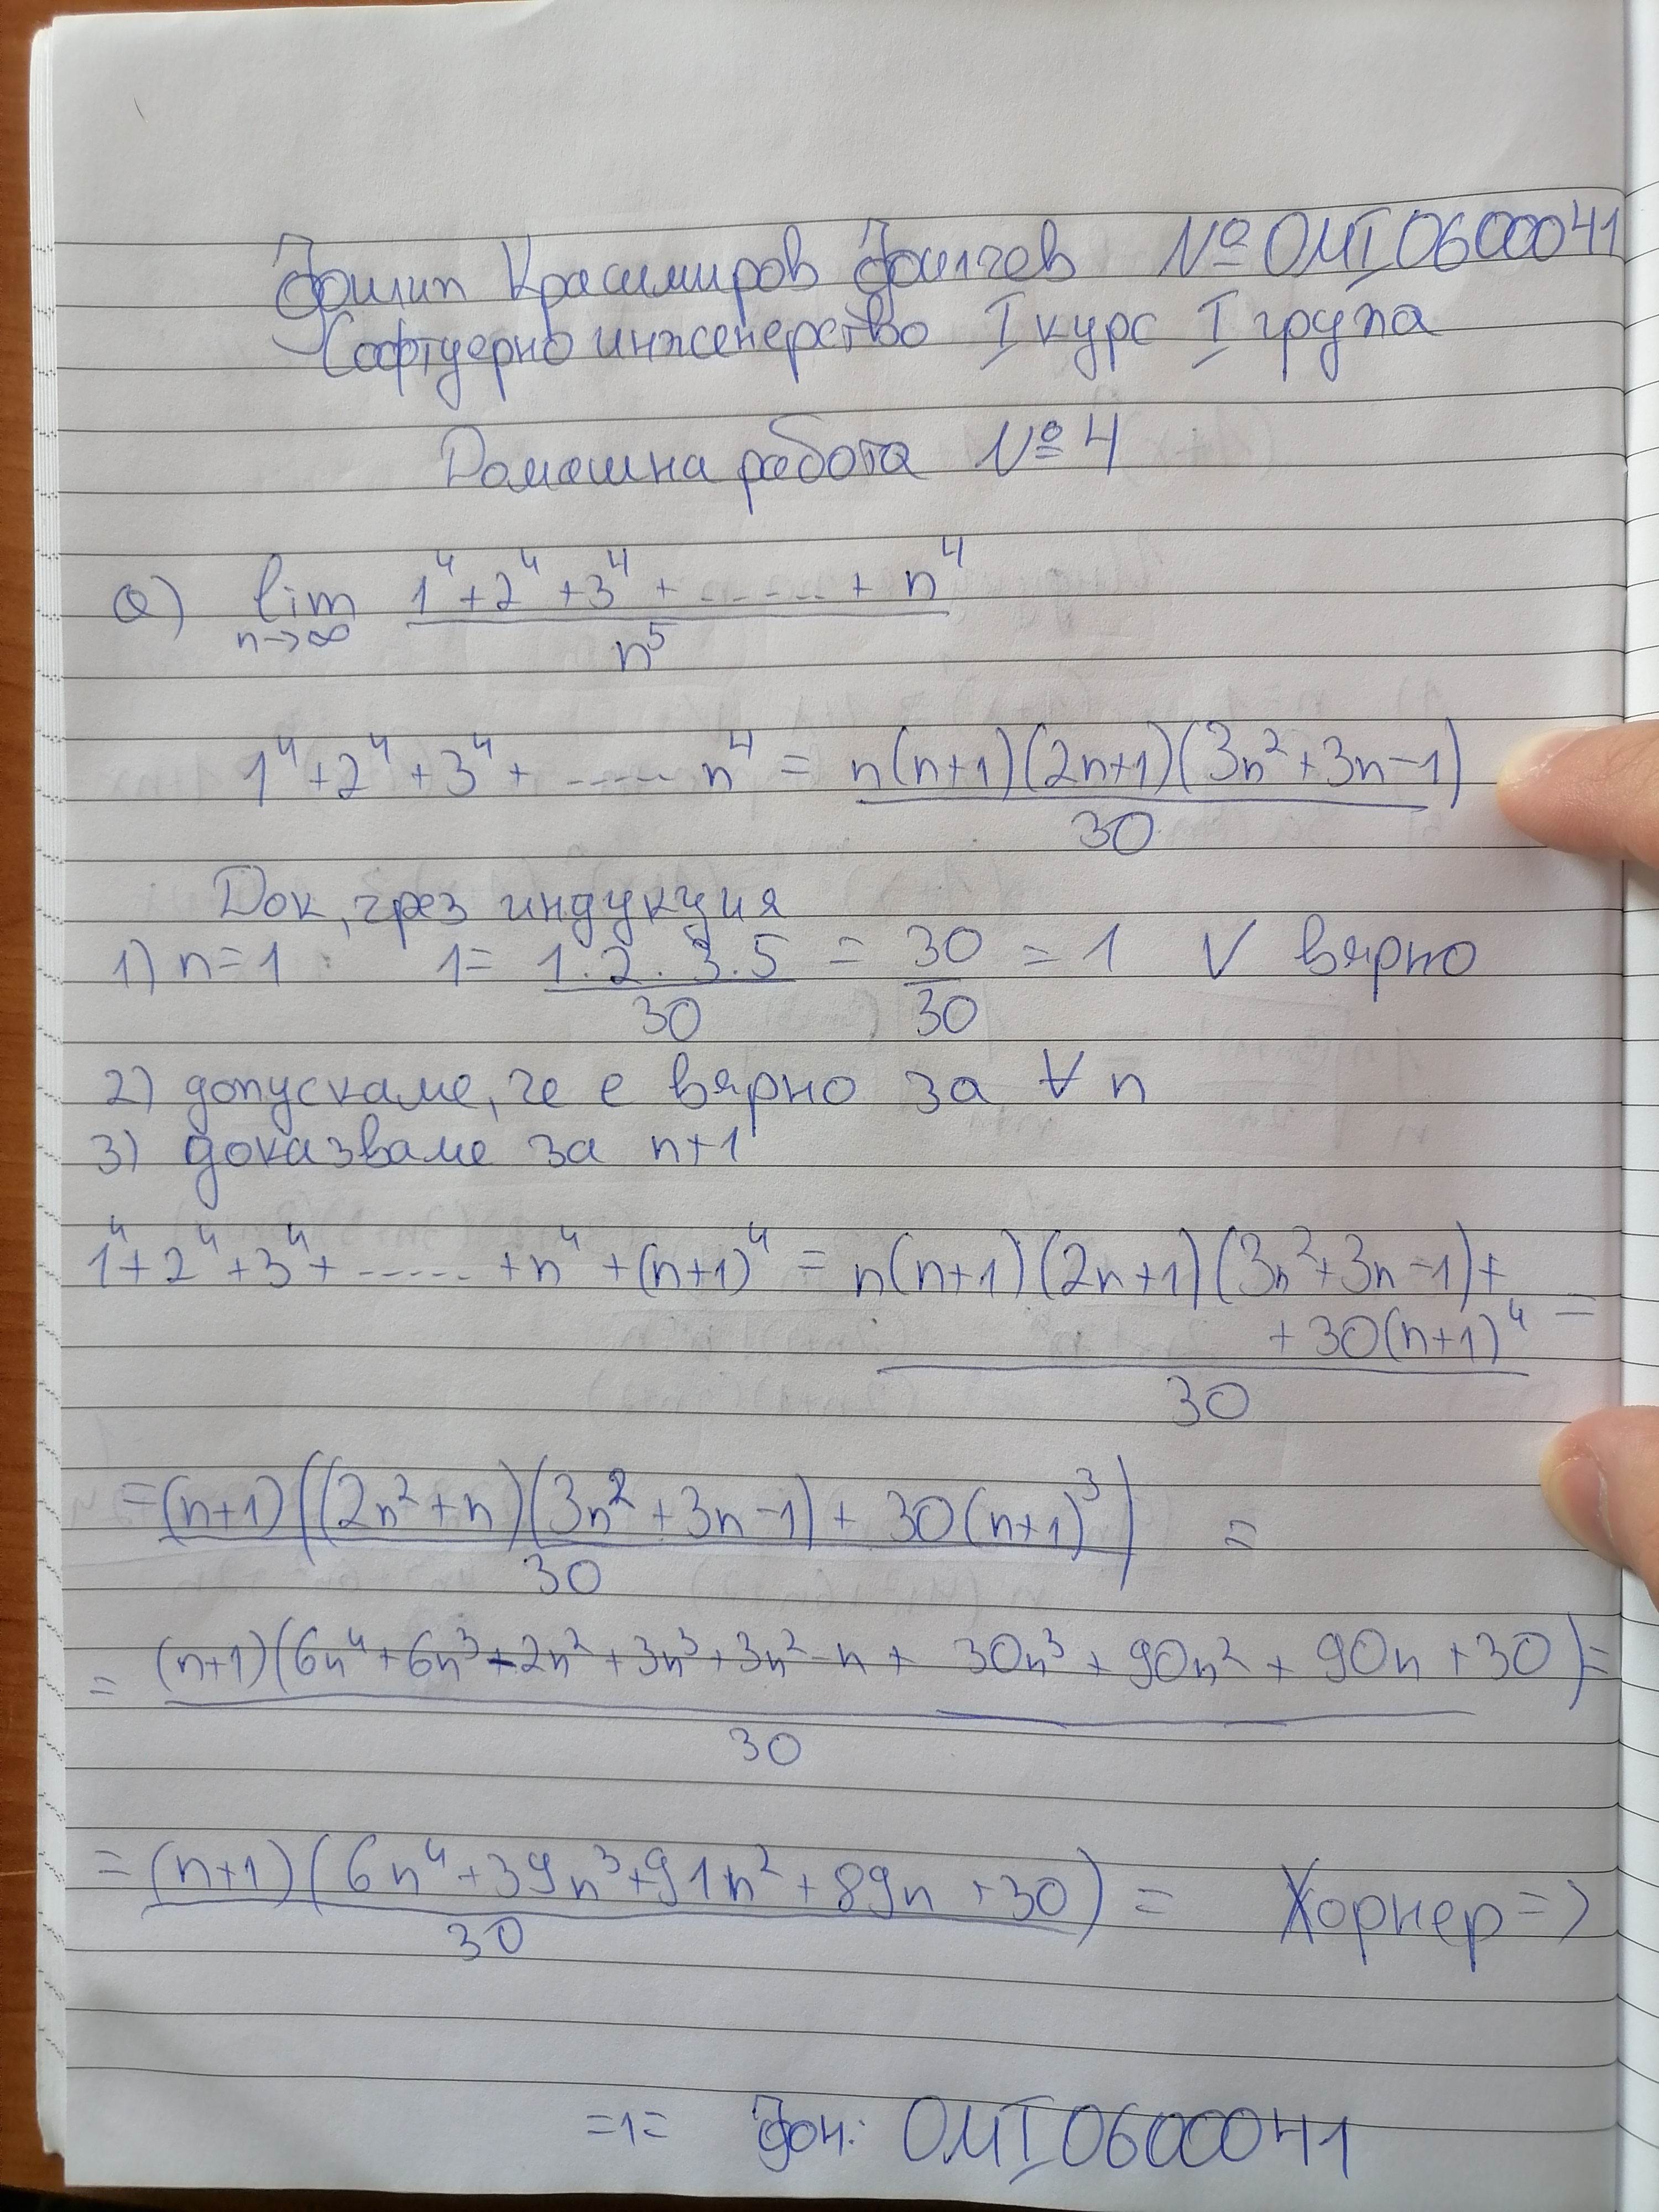 Филип Красимиров Филчев № 0MI0600041
Софтуерно инженерство I курс I група
Домашна работа № 4
а) lim n→∞ (1⁴+2⁴+3⁴+......+n⁴)/n⁵
1⁴+2⁴+3⁴+.....n⁴ = n(n+1)(2n+1)(3n²+3n-1)/30
Док, чрез индукция
1) n=1 1= 1.2.3.5/30 = 30/30 = 1 V вярно
2) допускаме, че е вярно за ∀ n
3) доказваме за n+1
1⁴+2⁴+3⁴+.....+n⁴+(n+1)⁴ = n(n+1)(2n+1)(3n²+3n-1)+
+30(n+1)⁴ =
30
=(n+1)((2n²+n)(3n²+3n-1)+30(n+1)³)/30 =
=(n+1)(6n⁴+6n³-2n²+3n³+3n²-n+30n³+90n²+90n+30)/30=
=(n+1)(6n⁴+39n³+91n²+89n+30)/30 = Хорнер=>
=1= Фн: 0MI0600041